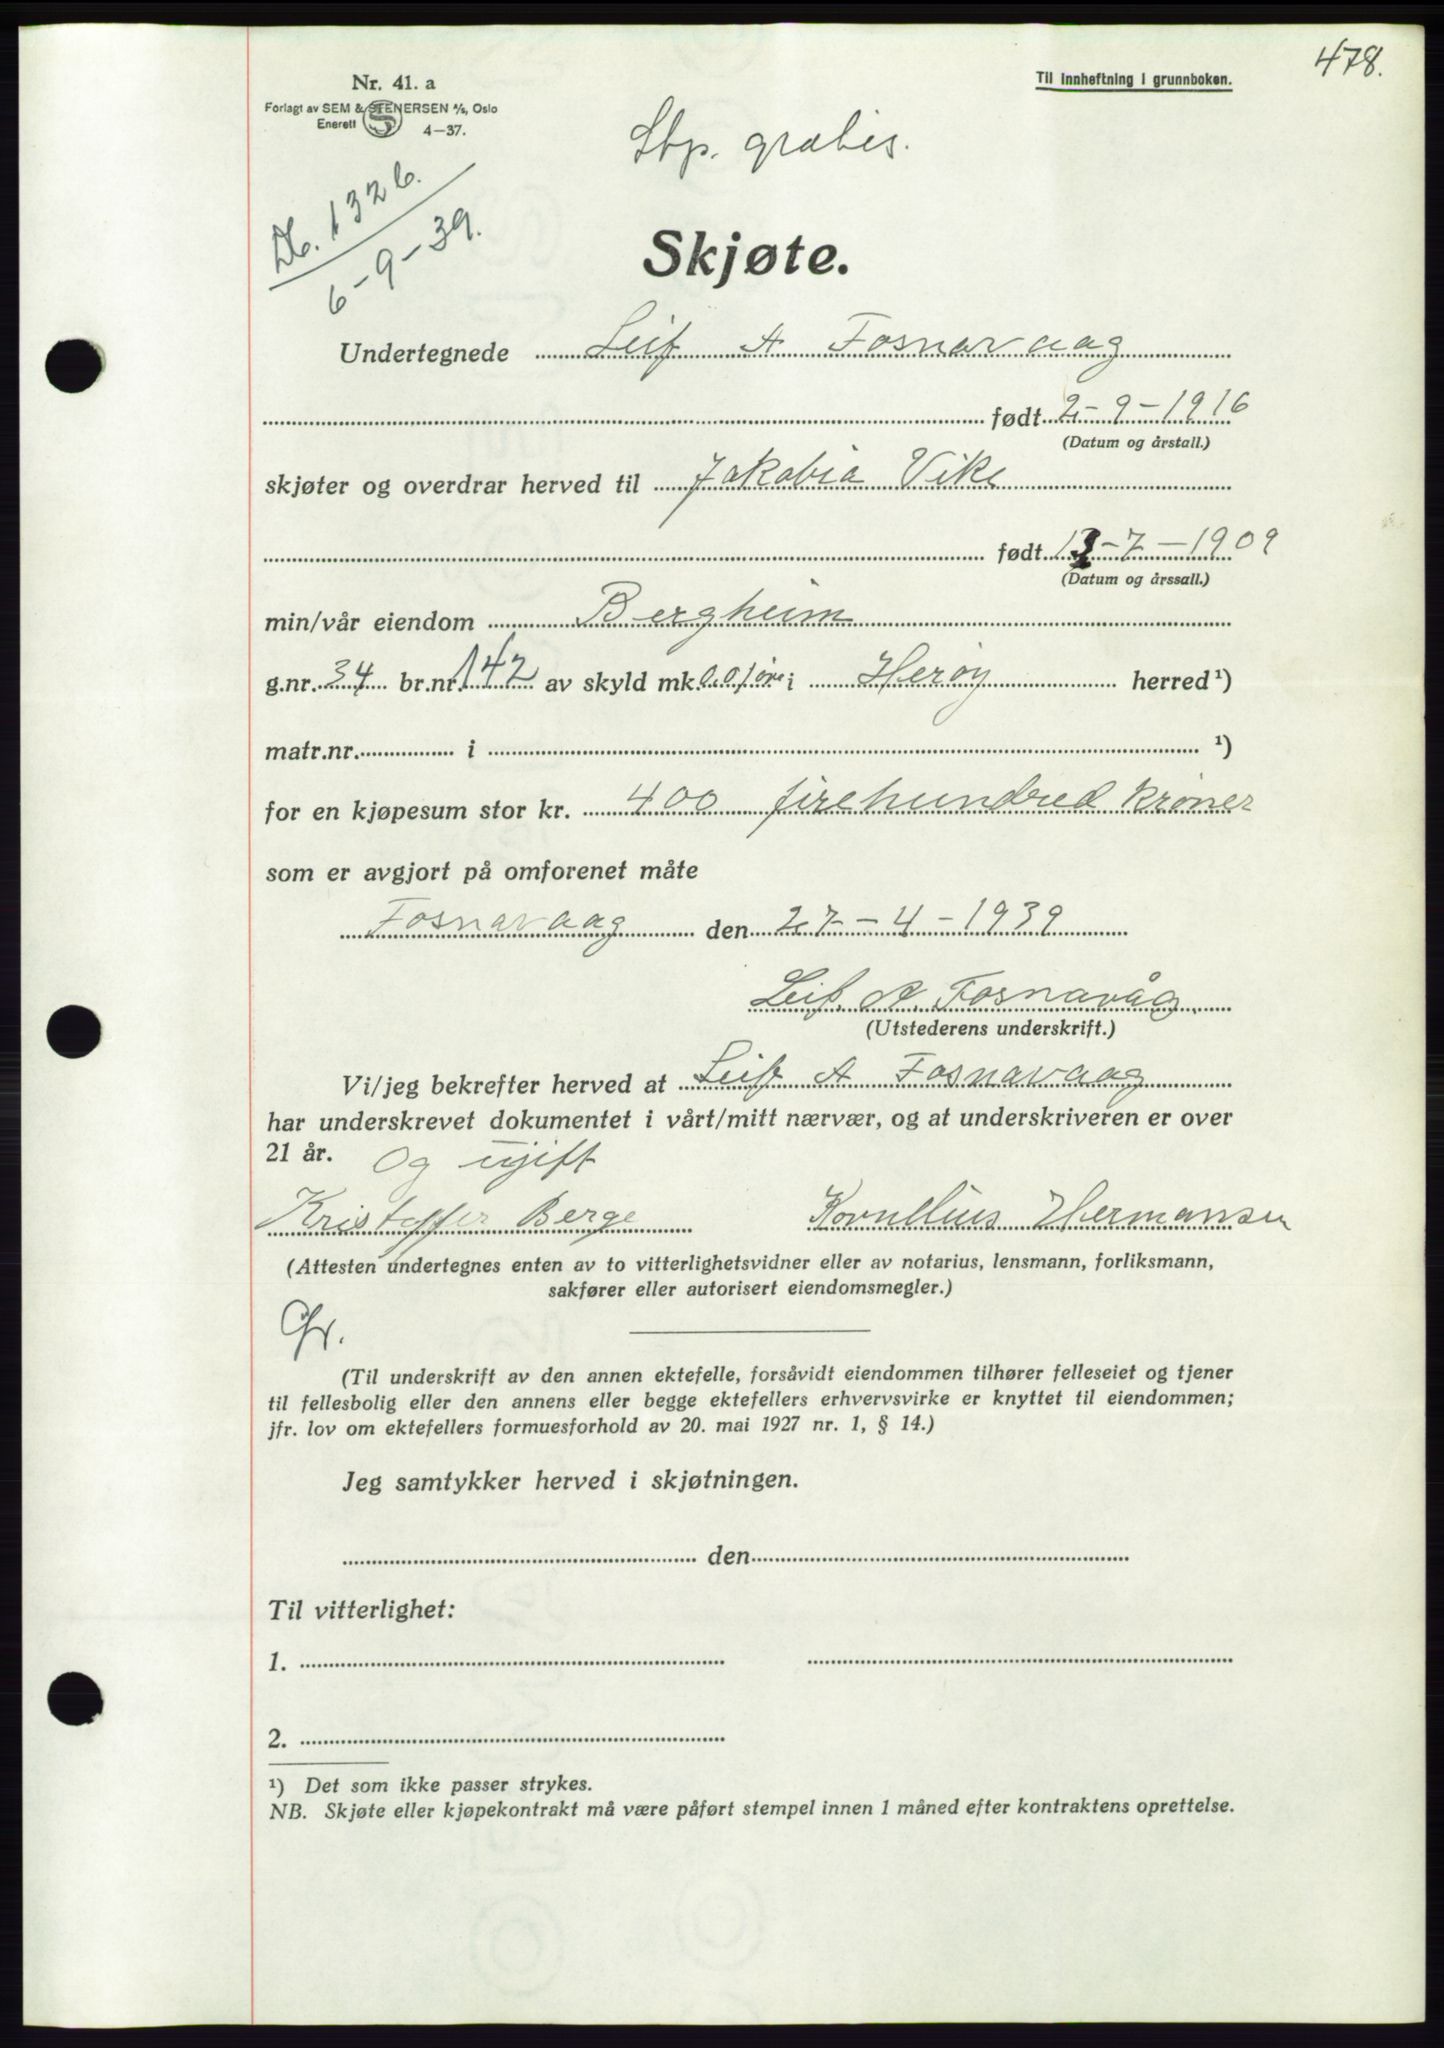 478.
Nr. 41. a
Til innheftning i grunnboken.
Forlagt av SEM & STENERSEN A/S, Oslo
Enerett 4—37.
Stp. gratis.
Db. 1326.
6-9-39.
Skjøte.
Undertegnede Leif A Fosnavaag
født 2-9-1916
(Datum og årstall.)
skjøter og overdrar herved til Jakobia Vike
født 13-7-1909
(Datum og årssall.)
min/vår eiendom Bergheim
g.nr. 34 br.nr. 142 av skyld mk. 0.01 øre i Herøy herred¹)
matr.nr. i ¹)
for en kjøpesum stor kr. 400 firehundred kroner
som er avgjort på omforenet måte
Fosnavaag den 27-4-1939
Leif. A. Fosnavåg.
(Utstederens underskrift.)
Vi/jeg bekrefter herved at Leif A Fosnavaag
har underskrevet dokumentet i vårt/mitt nærvær, og at underskriveren er over
21 år. Og ugift
Kristoffer Berge Kornelius Hermansen
(Attesten undertegnes enten av to vitterlighetsvidner eller av notarius, lensmann, forliksmann,
sakfører eller autorisert eiendomsmegler.)
Gr.
(Til underskrift av den annen ektefelle, forsåvidt eiendommen tilhører felleseiet og tjener
til fellesbolig eller den annens eller begge ektefellers erhvervsvirke er knyttet til eiendommen;
jfr. lov om ektefellers formuesforhold av 20. mai 1927 nr. 1, § 14.)
Jeg samtykker herved i skjøtningen.
den
Til vitterlighet:
1.
2.
¹) Det som ikke passer strykes.
NB. Skjøte eller kjøpekontrakt må være påført stempel innen 1 måned efter kontraktens oprettelse.